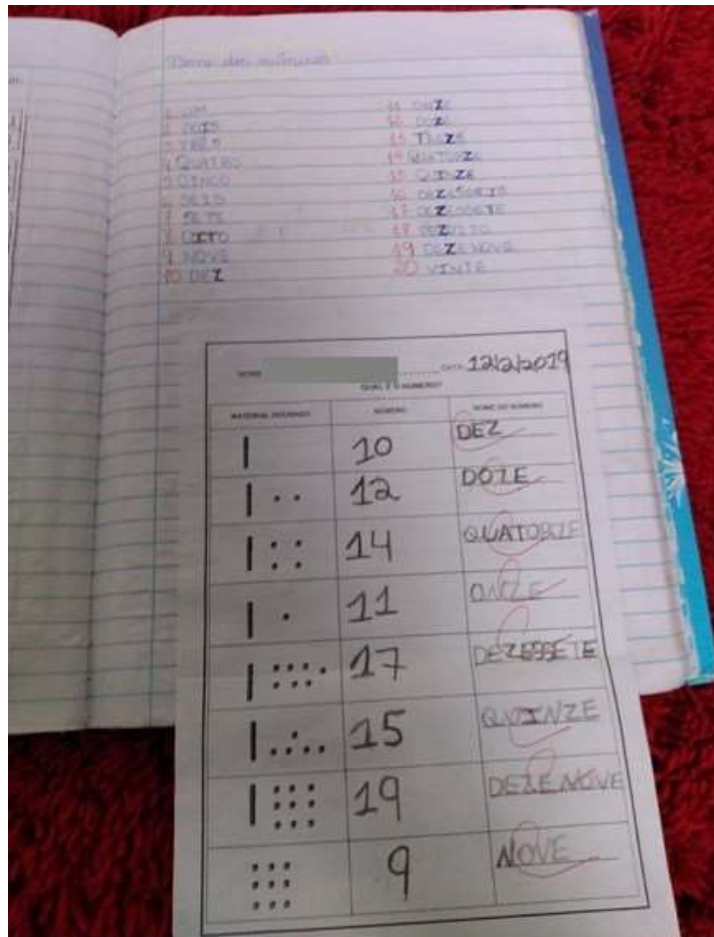 Nome dos números
1 UM
2 DOIS
3 TRÊS
4 QUATRO
5 CINCO
6 SEIS
7 SETE
8 OITO
9 NOVE
10 DEZ
11 ONZE
12 DOZE
13 TREZE
14 QUATORZE
15 QUINZE
16 DEZESSEIS
17 DEZESSETE
18 DEZOITO
19 DEZENOVE
20 VINTE
NOME DATA 12/2/2019
QUAL É O NÚMERO?
MATERIAL DOURADO NÚMERO NOME DO NÚMERO
10 DEZ
12 DOZE
14 QUATORZE
11 ONZE
17 DEZESSETE
15 QUINZE
19 DEZENOVE
9 NOVE